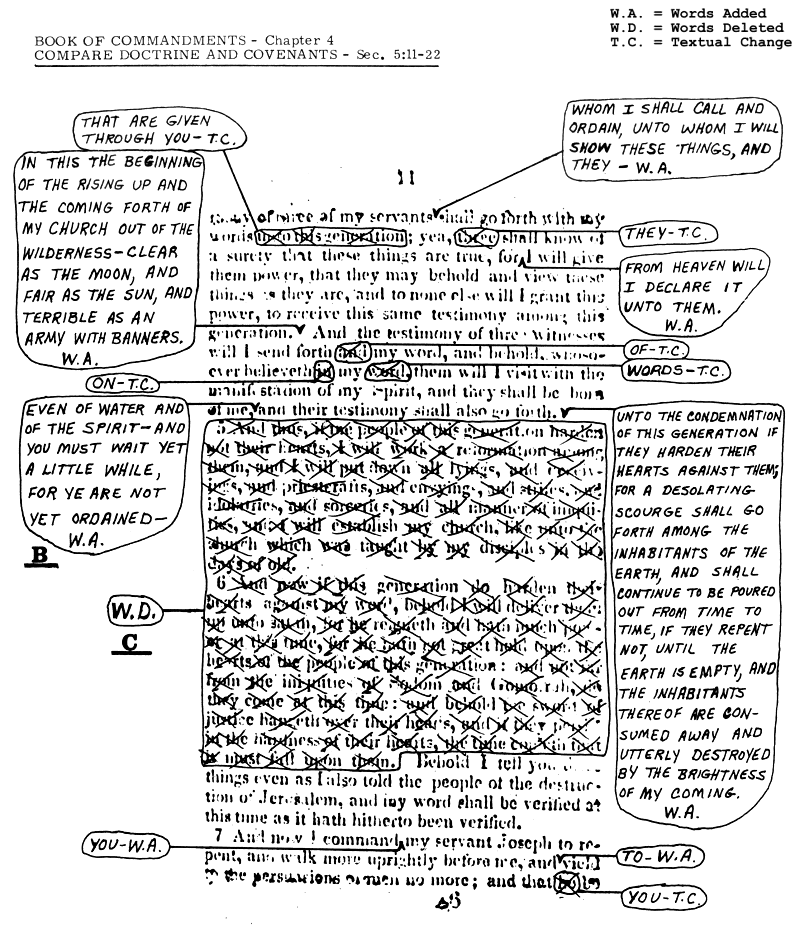 W.A. = Words Added
W.D. = Words Deleted
T.C. = Textual Change
BOOK OF COMMANDMENTS - Chapter 4
COMPARE DOCTRINE AND COVENANTS - Sec. 5:11-22
THAT ARE GIVEN
THROUGH YOU-T.C.
WHOM I SHALL CALL AND
ORDAIN, UNTO WHOM I WILL
SHOW THESE THINGS, AND
THEY - W.A.
IN THIS THE BEGINNING
OF THE RISING UP AND
THE COMING FORTH OF
MY CHURCH OUT OF THE
WILDERNESS-CLEAR
AS THE MOON, AND
FAIR AS THE SUN, AND
TERRIBLE AS AN
ARMY WITH BANNERS.
W.A.
11
of three of my servants shall go forth with my
words unto this generation; yea, three shall know of
a surety that these things are true, for I will give
them power, that they may behold and view these
things as they are, and to none else will I grant this
power, to receive this same testimony among this
generation. And the testimony of three witnesses
will I send forth and my word, and behold, whoso-
ever believeth in my word, them will I visit with the
manifestation of my Spirit, and they shall be born
of me, and their testimony shall also go forth.
THEY-T.C.
FROM HEAVEN WILL
I DECLARE IT
UNTO THEM.
W.A.
OF-T.C.
WORDS-T.C.
ON-T.C.
EVEN OF WATER AND
OF THE SPIRIT-AND
YOU MUST WAIT YET
A LITTLE WHILE,
FOR YE ARE NOT
YET ORDAINED-
W.A.
B
UNTO THE CONDEMNATION
OF THIS GENERATION IF
THEY HARDEN THEIR
HEARTS AGAINST THEM;
FOR A DESOLATING
SCOURGE SHALL GO
FORTH AMONG THE
INHABITANTS OF THE
EARTH, AND SHALL
CONTINUE TO BE POURED
OUT FROM TIME TO
TIME, IF THEY REPENT
NOT, UNTIL THE
EARTH IS EMPTY, AND
THE INHABITANTS
THEREOF ARE CON-
SUMED AWAY AND
UTTERLY DESTROYED
BY THE BRIGHTNESS
OF MY COMING.
W.A.
5 And thus, if the people of this generation harden
not their hearts, I will work a reformation among
them, and I will put down all lyings, and deceiv-
ings, and priestcrafts, and envyings, and strifes, and
idolatries, and sorceries, and all manner of iniqui-
ties, and I will establish my church, like unto the
church which was taught by my disciples in the
days of old.
6 And now if this generation do harden their
hearts against my word, behold I will deliver them
up unto satan, for he reigneth and hath much pow-
er at this time, for he hath got great hold upon the
hearts of the people of this generation: and not far
from the iniquities of Sodom and Gomorrah, do
they come at this time: and behold the sword of
justice hangeth over their heads, and if they persist
in the hardness of their hearts, the time cometh that
it must fall upon them. Behold I tell you these
things even as I also told the people of the destruc-
tion of Jerusalem, and my word shall be verified at
this time as it hath hitherto been verified.
7 And now I command my servant Joseph to re-
pent, and walk more uprightly before me, and yield
to the persuasions of men no more; and that he be
W.D.
C
YOU-W.A.
TO-W.A.
YOU-T.C.